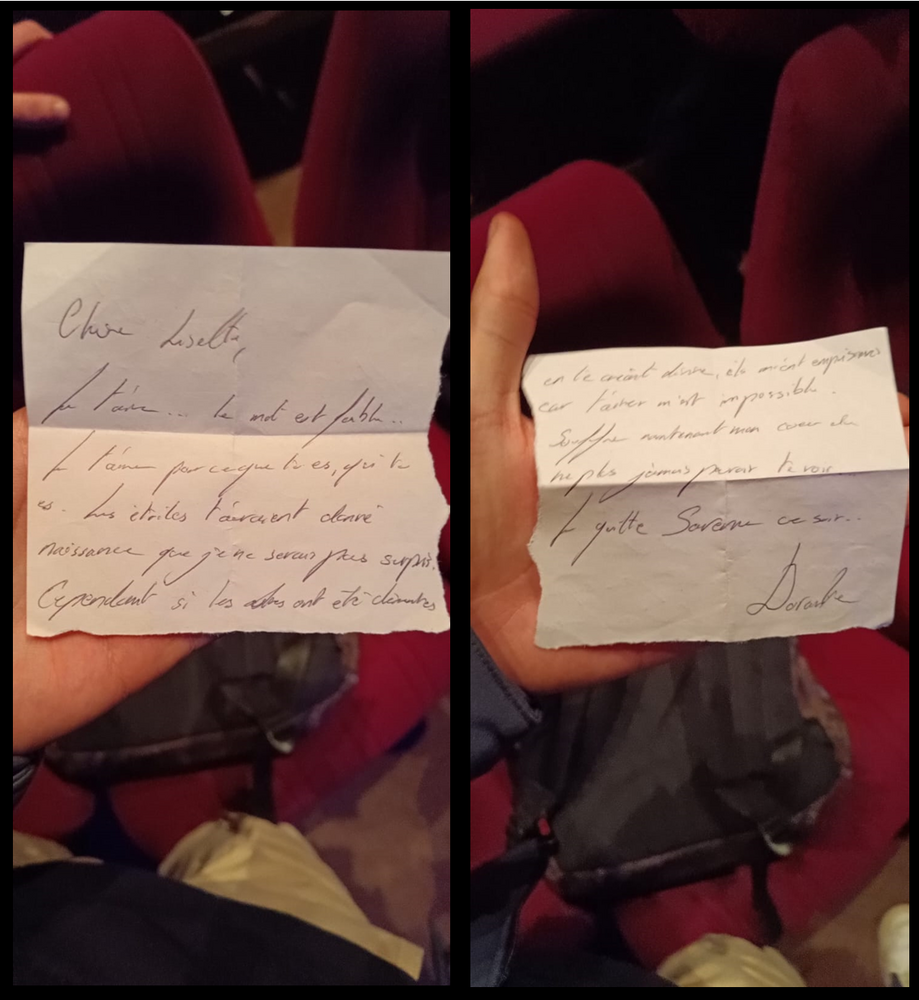 Chère Liselte,
Je t'aime... le mot est faible..
Je t'aime parce que tu es, qui tu
es. Les étoiles t'auraient donné
naissance que je ne serais pas surpris.
Cependant si les ont été clémentes
en te créant divine, ils m'ont emprisonné
car t'aimer m'est impossible.
Souffre maintenant mon coeur de
ne plus jamais pouvoir te voir.
Je quitte Saverne ce soir..
Dorante